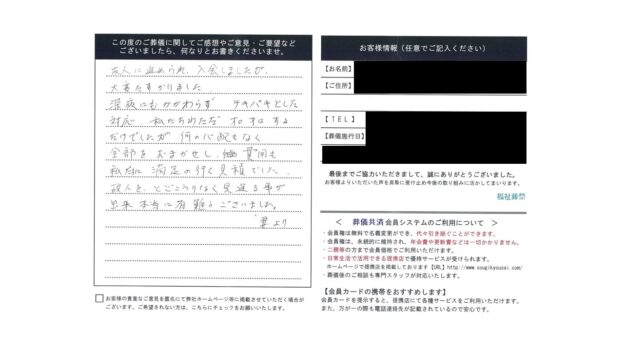 この度のご葬儀に関してご感想やご意見・ご要望など
ございましたら、何なりとお書きくださいませ。
友人に進められ、入会しましたが、
大変たすかりました。
深夜にもかかわらず テキパキとした
対応 私たちわただ お する
だけでしたが 何の心配もなく
全部をおまかせし、価 費用も
私達に満足の行く見積でした。
故人を、とどこうりなく見送る事が
出来 本当に有難うございました。
妻より
お客様の貴重なご意見を匿名にて弊社ホームページ等に掲載させていただく場合が
ございます。ご希望されない方は、こちらにチェックをお願いいたします。
お客様情報（任意でご記入ください）
【お名前】
【ご住所】
【TEL】
【葬儀施行日】
最後までご協力いただきまして、誠にありがとうございました。
お客様よりいただいた声を真摯に受け止め今後の取り組みに活かしてまいります。
福祉葬祭
＜ 葬儀共済 会員システムのご利用について ＞
・会員権は無料で名義変更ができ、代々引き継ぐことができます。
・会員権は、永続的に維持され、年会費や更新費などは一切かかりません。
・二親等の方まで会員価格でご利用いただけます。
・日常生活で活用できる提携店で優待サービスが受けられます。
ホームページで提携店を掲載しております【URL】http://www.sougikyousai.com/
・葬儀後のご相談も専門スタッフが対応いたします。
【会員カードの携帯をおすすめします】
会員カードを提示すると、提携店にて各種サービスをご利用いただけます。
また、万が一の際も電話連絡先が記載されているので安心です。